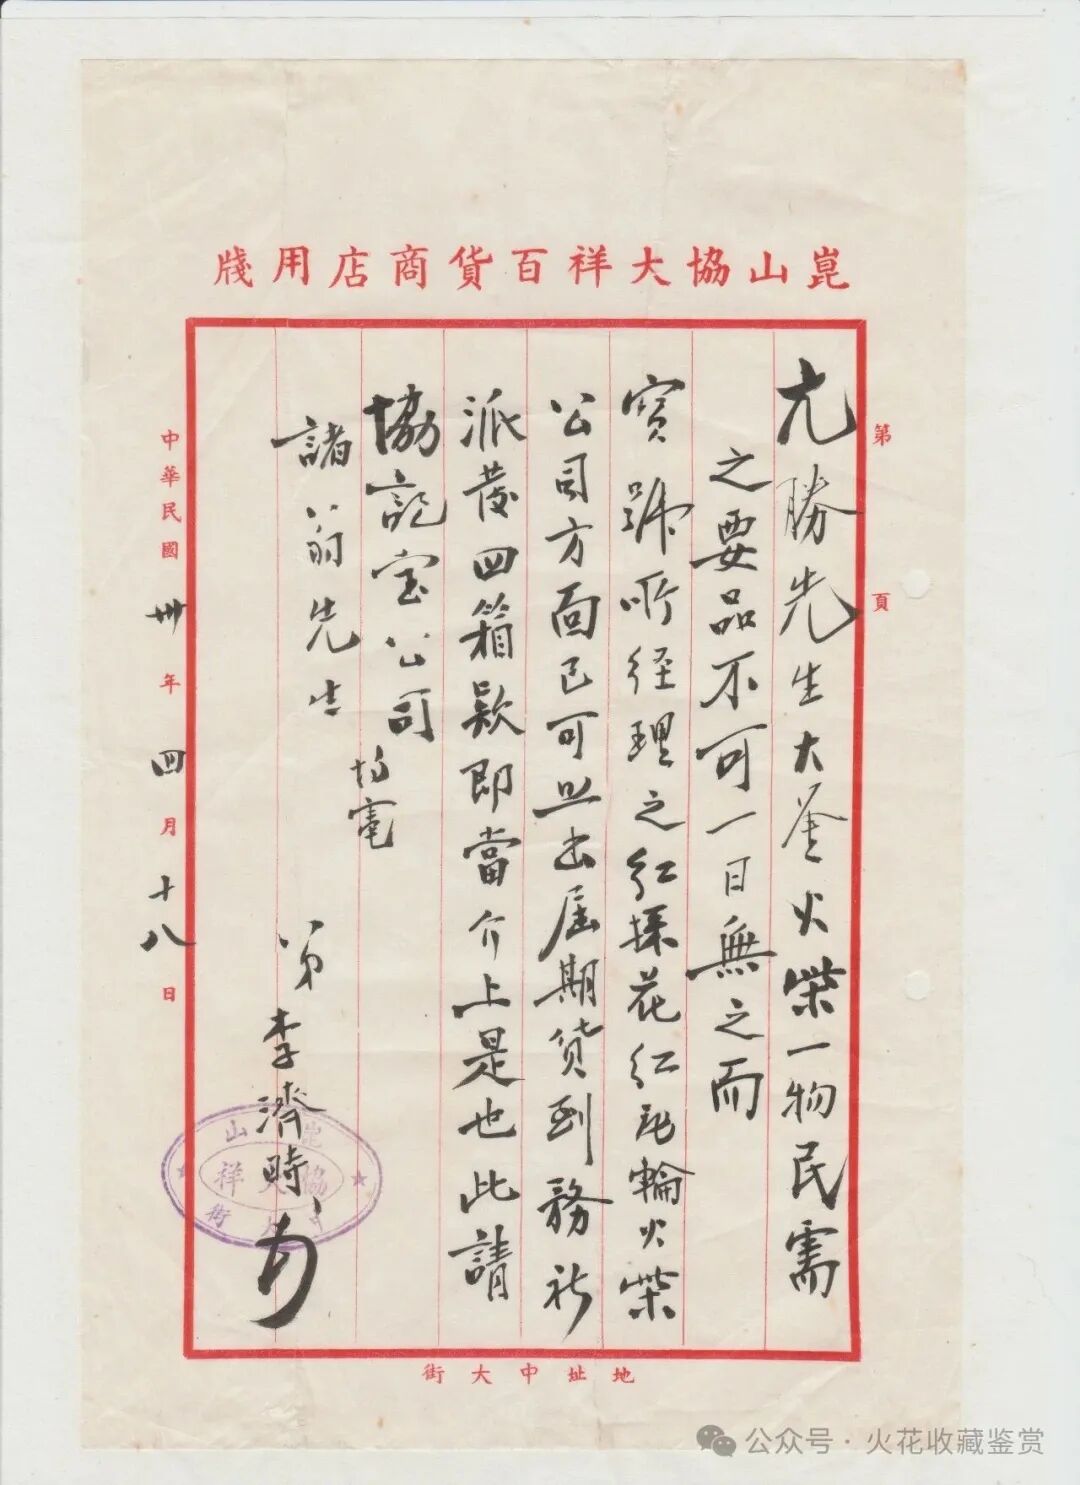 崑山協大祥百貨商店用牋
第 頁
尤勝先生大鑒火柴一物民需
之要品不可一日無之而
寳號所经理之红採花红飛輪火柴
公司方面已可出屆期貨到務祈
派發四箱款即當介上是也此請
協記宝公司
諸翁先生
弟李濟時
中華民國卅年四月十八日
崑山
協大祥
中大街
地址中大街
公众号·火花收藏鉴赏